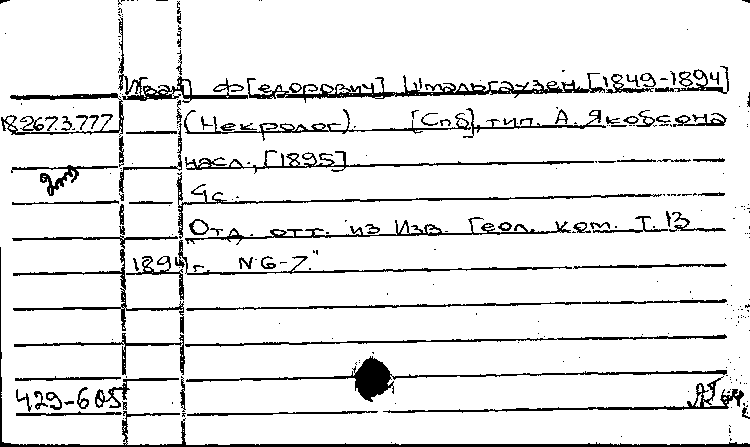 И[ван] Ф[едорович] Шмальгаузен. [1849-1894]
18267.3.777 (Некролог). [Спб], тип. А. Якобсона
насл., [1895]
4 с.
"Отд. отт. из Изв. Геол. ком. Т. 13
1894 г. № 6-7."
429-605